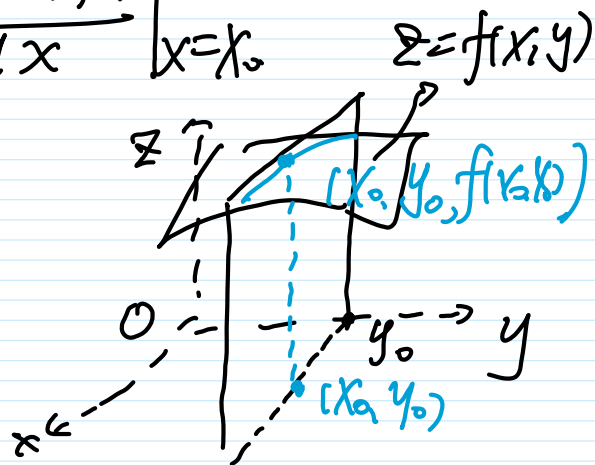 x |x=x₀
z=f(x,y)
z
(x₀, y₀, f(x₀,y₀))
O
y₀
y
(x₀, y₀)
x